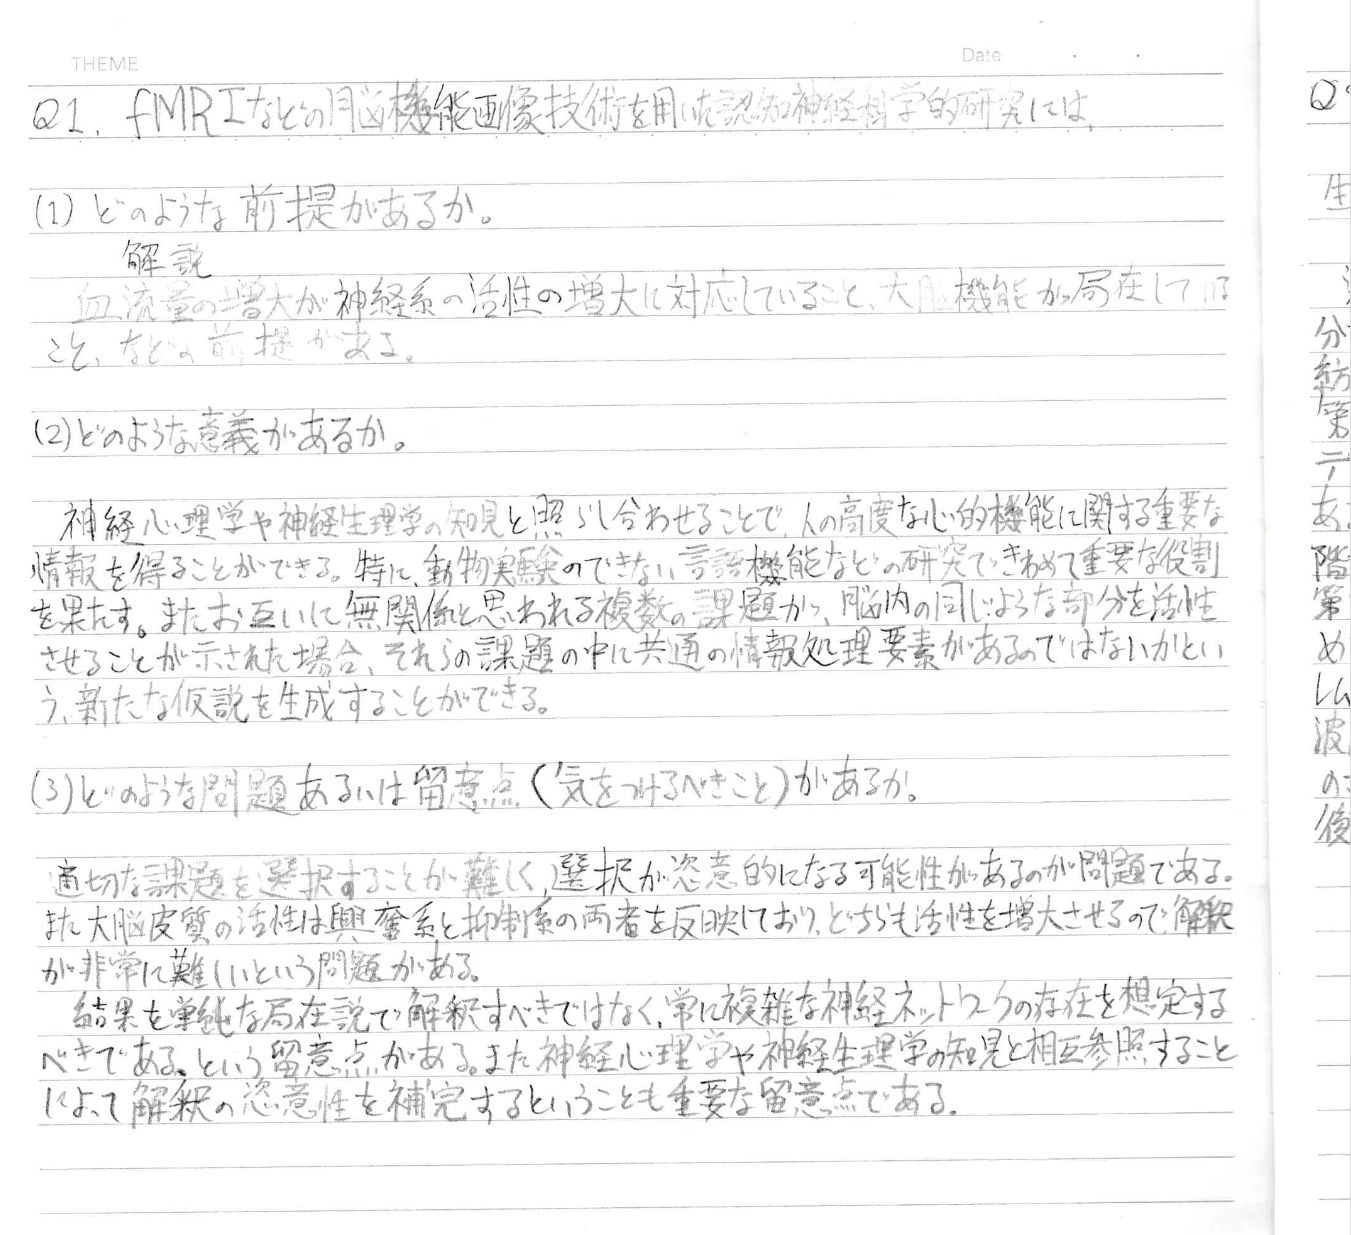 THEME
Date
Q1. fMRIなどの脳機能画像技術を用いた認知神経科学的研究には、
(1) どのような前提があるか。
解説
血流量の増大が神経系の活性の増大に対応していること、大脳機能が局在している
こと、などの前提がある。
(2)どのような意義があるか。
神経心理学や神経生理学の知見と照らし合わせることで、人の高度な心的機能に関する重要な
情報を得ることができる。特に、動物実験のできない言語機能などの研究できわめて重要な役割
を果たす。またお互いに無関係と思われる複数の課題が、脳内の同じような部分を活性
させることが示された場合、それらの課題の中に共通の情報処理要素があるのではないかとい
う、新たな仮説を生成することができる。
(3)どのような問題あるいは留意点(気をつけるべきこと)があるか。
適切な課題を選択することが難しく、選択が恣意的になる可能性があるのが問題である。
また大脳皮質の活性は興奮系と抑制系の両者を反映しており、どちらも活性を増大させるので、解釈
が非常に難しいという問題がある。
結果を単純な局在説で解釈すべきではなく、常に複雑な神経ネットワークの存在を想定する
べきである、という留意点がある。また神経心理学や神経生理学の知見と相互参照すること
によって解釈の恣意性を補完するということも重要な留意点である。
Q
生
分
紡
第
デ
あ
階
第
め
レム
波
の
後